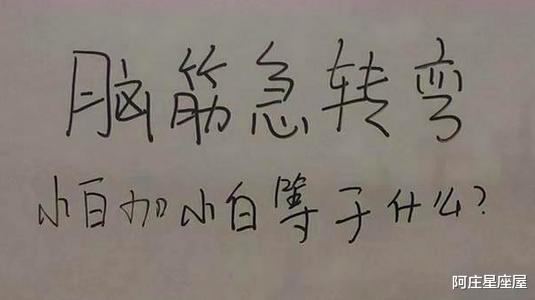 脑筋急转弯
小白加小白等于什么?
阿庄星座屋